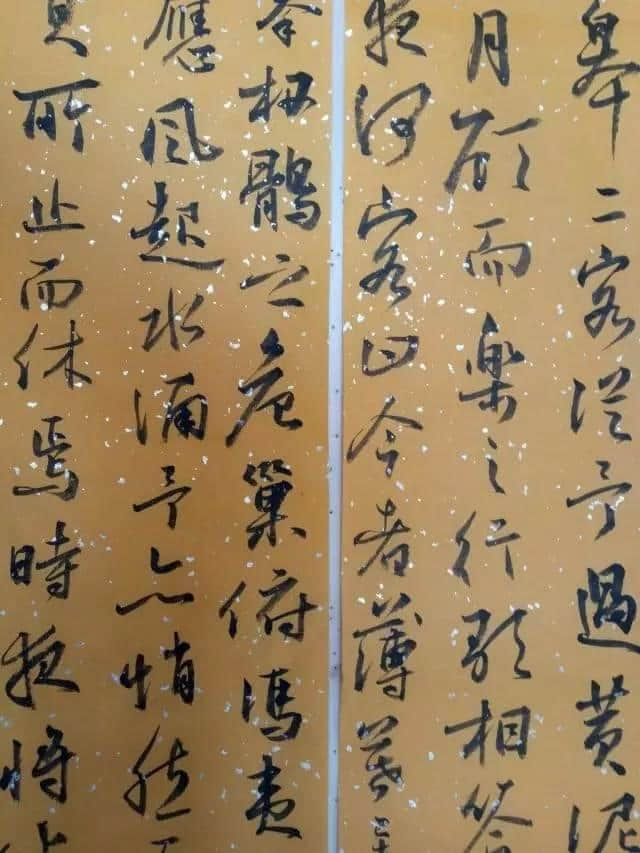 皋二客從予過黄泥
月顧而樂之行歌相答
夜何客曰今者薄暮
栖鶻之危巢俯馮夷
應風起水涌予亦悄然
其所止而休焉時夜將